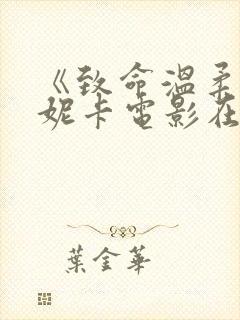 《致命溫柔
妮卡電影在
葉金華